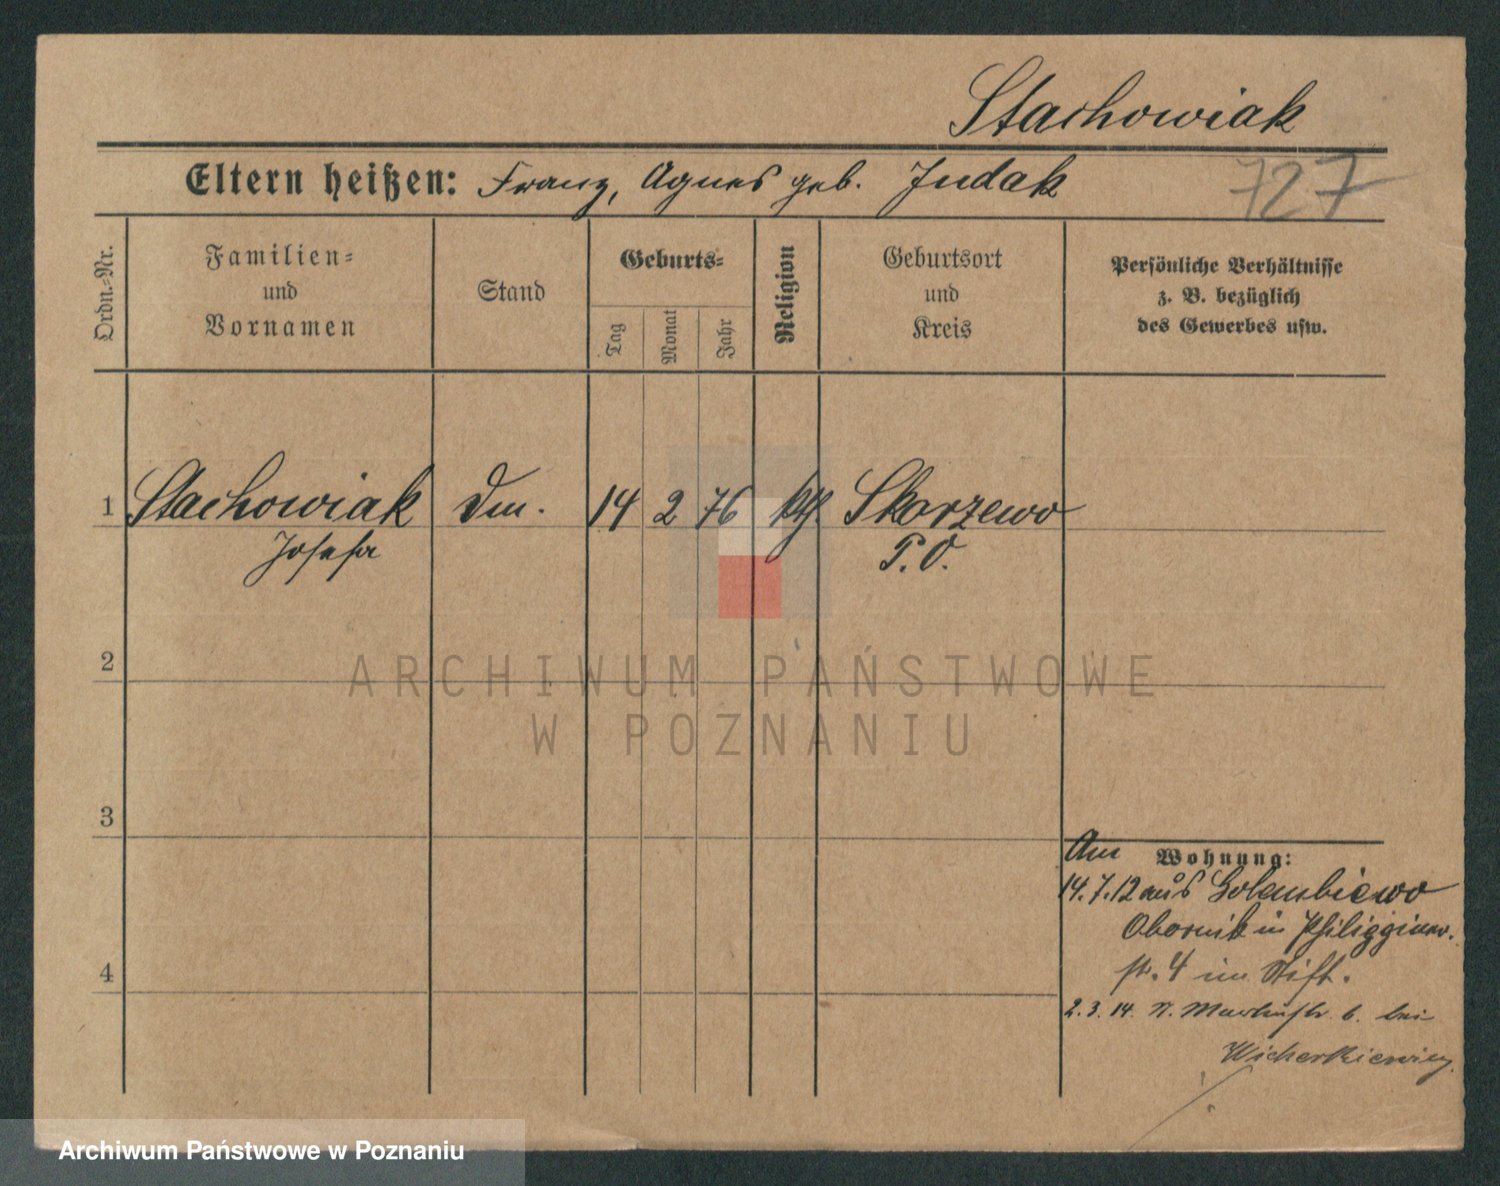 Stachowiak
Eltern heißen: Franz, Agnes geb. Judak
727
Ordn.-Nr.
Familien-
und
Vornamen
Stand
Geburts-
Tag
Monat
Jahr
Religion
Geburtsort
und
Kreis
Persönliche Verhältnisse
z. B. bezüglich
des Gewerbes usw.
1 Stachowiak Dm. 14 2 76 kth. Skorzewo
Josefa P. O.
2
ARCHIWUM PAŃSTWOWE
W POZNANIU
3
Am Wohnung:
14.7.12 aus Golembiewo
Obornik in
str. 4 im Stift.
4
2.3.14. 6. bei
Wicherkiewicz
Archiwum Państwowe w Poznaniu